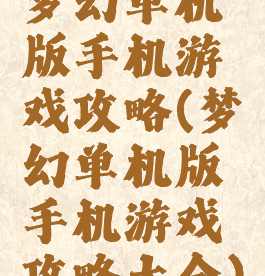 梦幻单机
版手机游
戏攻略(梦
幻单机版
手机游戏
攻略大全)